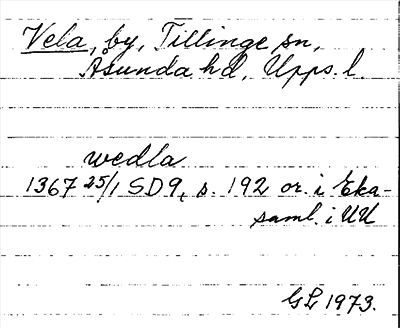 Vela, by, Tillinge sn,
Åsunda hd, Upps. l.
wedla
1367 25/1 SD 9, s. 192 or. i Eka-
saml. i UU
GL 1973.